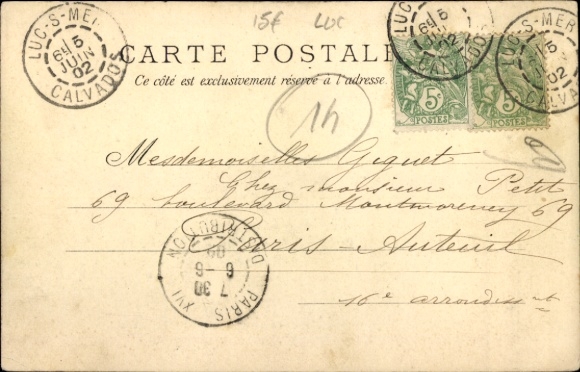 15€ LUC
LUC-S-MER
6E 5
JUIN
02
CALVADOS
CARTE POSTALE
Ce côté est exclusivement réservé à l'adresse.
LUC-S-MER
6E 5
CALVADOS
5c
POSTES
5c
POSTES
LUC-S-MER
5
JUIN
02
CALVADOS
14
Mesdemoiselles Giguet
Chez monsieur Petit
69 boulevard Montmorency 69
Paris-Auteuil
16e arrondisst
PARIS XVI
DISTRIBUTION
7 30
6-6
02